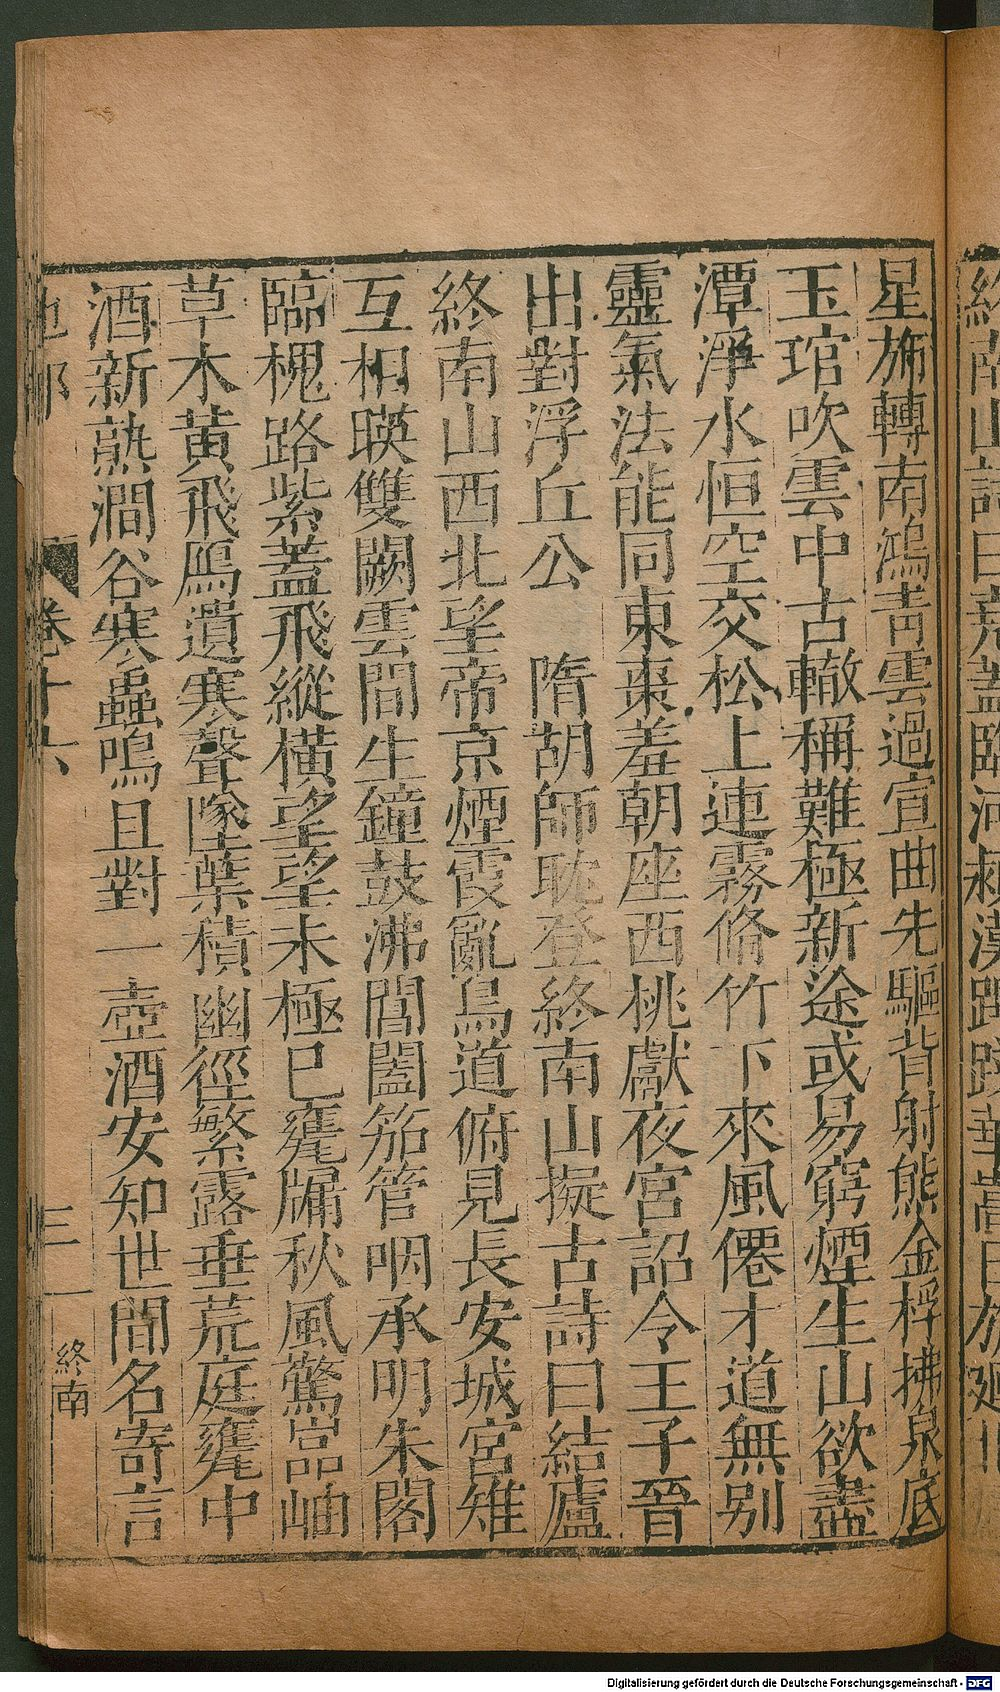 星旆轉南鴻靑雲過宜曲先驅背射熊金桴拂泉底
玉琯吹雲中古轍稱難極新途或易窮煙生山欲盡
潭淨水恒空交松上連霧脩竹下來風僊才道無别
靈氣法能同東棗羞朝座西桃獻夜宮詔令王子晉
出對浮丘公　隋胡師耽登終南山擬古詩曰結廬
終南山西北望帝京煙霞亂鳥道俯見長安城宮雉
互相暎雙闕雲間生鐘鼓沸閭闔笳管咽承明朱閣
臨槐路紫蓋飛縱橫望望未極已甕牖秋風驚嵓岫
草木黄飛鴈遺寒聲墜葉積幽徑繁露垂荒庭甕中
酒新熟澗谷寒蟲鳴且對一壺酒安知世間名寄言
卷十六 三 終南
Digitalisierung gefördert durch die Deutsche Forschungsgemeinschaft - DFG